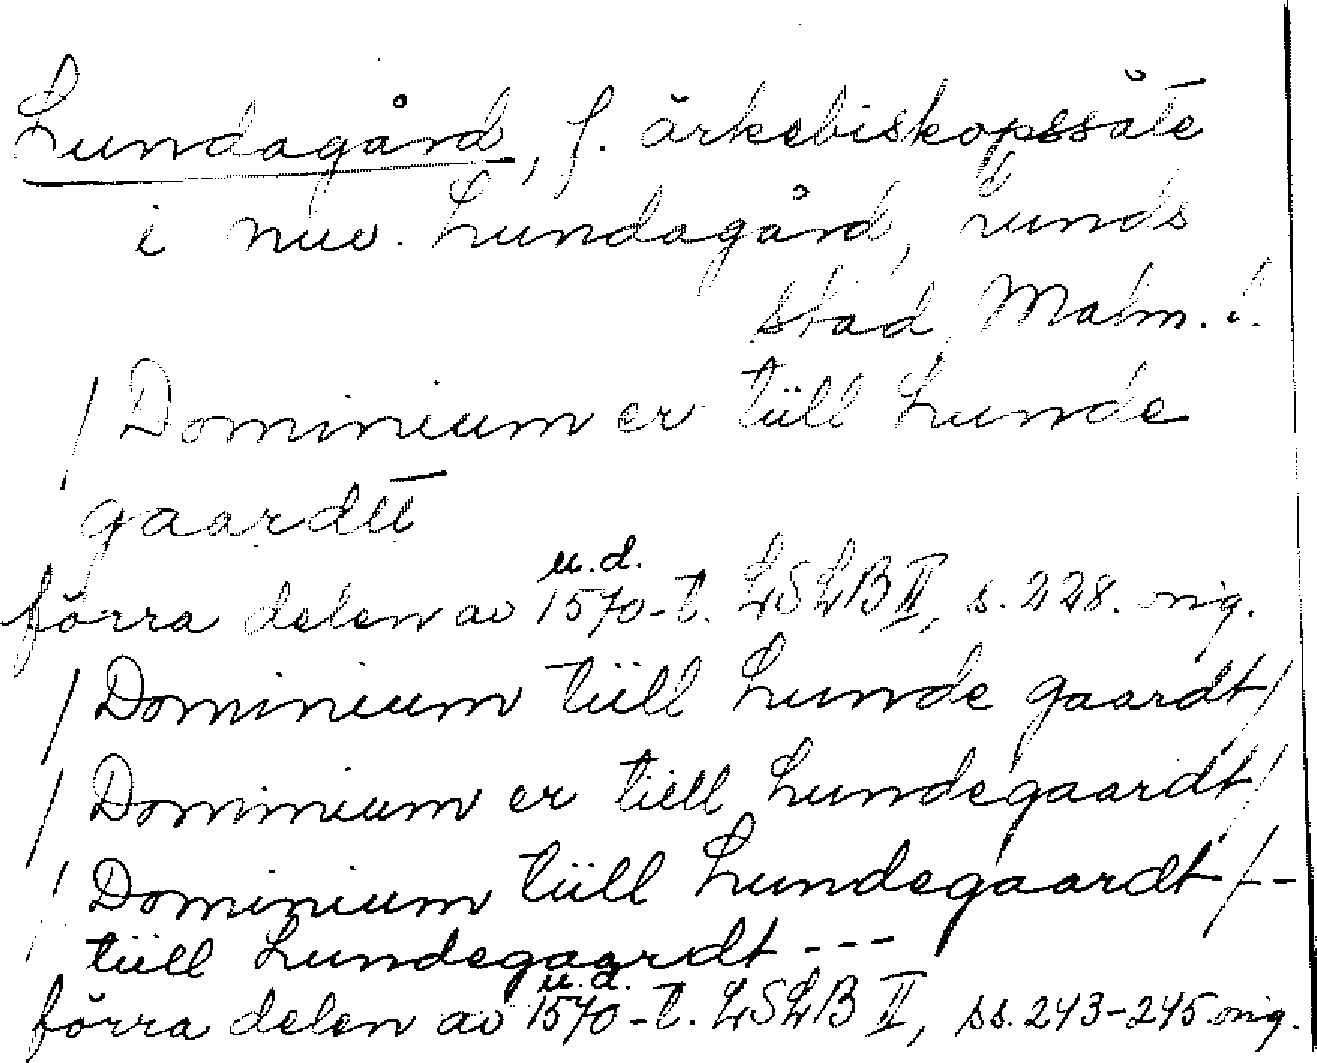 Lundagård, f. ärkebiskopssäte
i nuv. Lundagård, Lunds
stad, Malm. l.
/ Dominium er tiill Lunde
gaardtt
u.d.
förra delen av 1570-t. LSLB II, s. 228. orig.
/ Dominium tiill Lunde gaardt /
/ Dominium er tiell Lundegaardt /
/ Dominium tiill Lundegaardt / -
tiill Lundegaardt ---
u.d.
förra delen av 1570-t. LSLB II, ss. 243-245 orig.